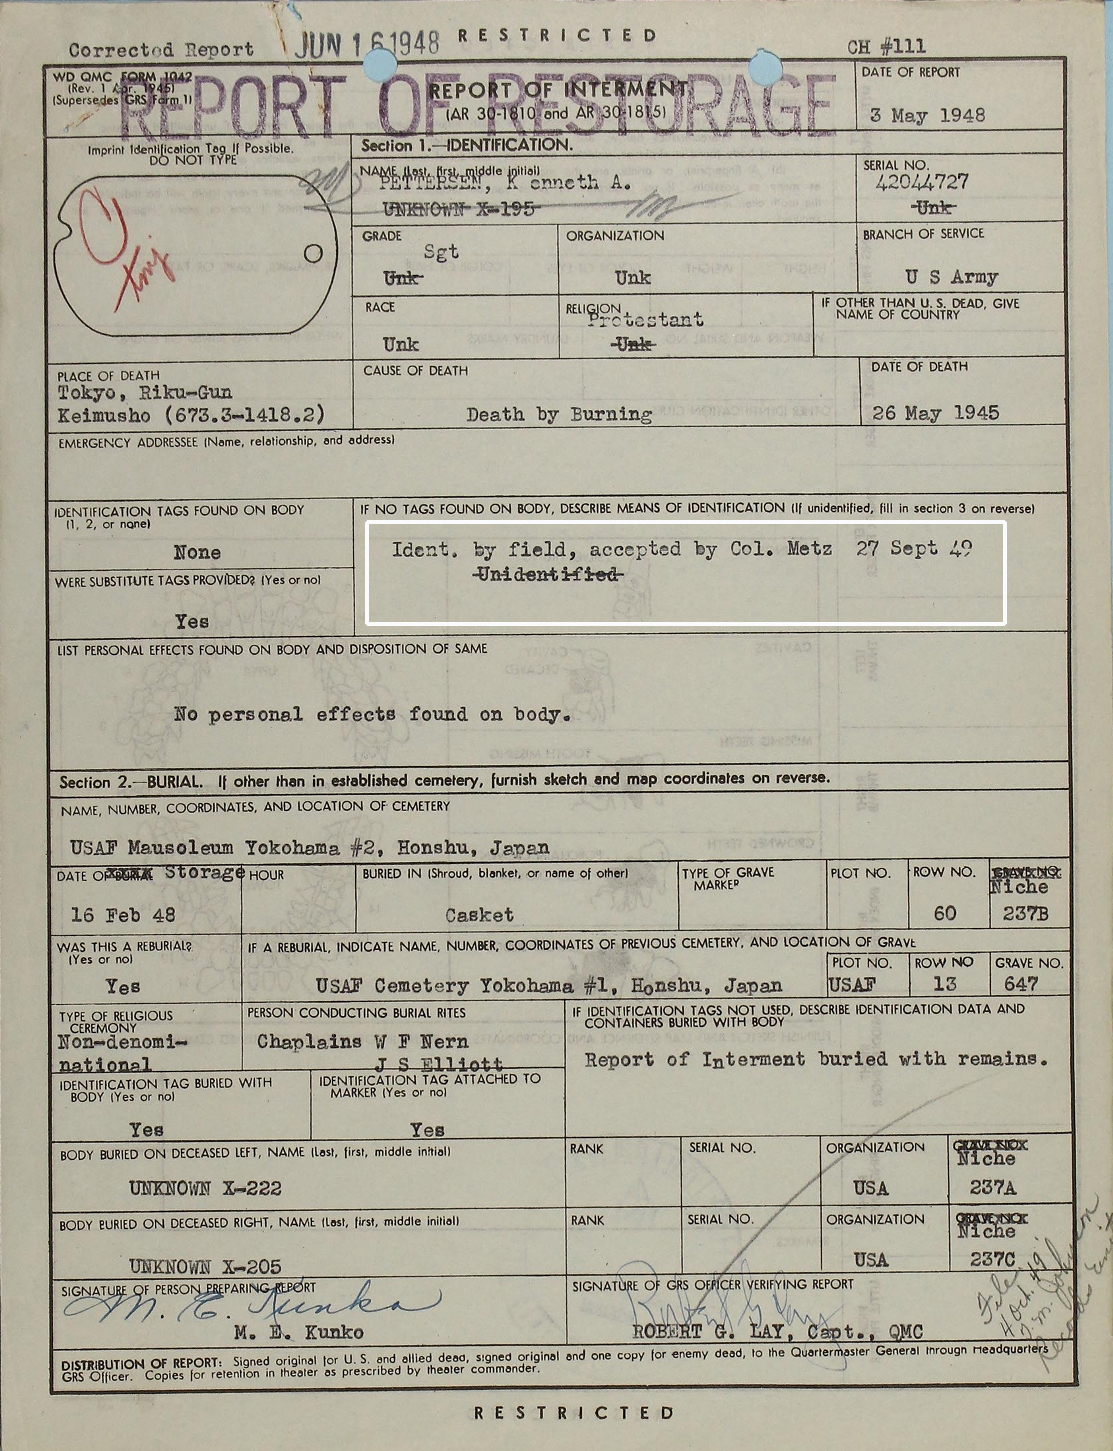 Corrected Report
JUN 16 1948
RESTRICTED
CH #111
WD QMC FORM 1042
(Rev. 1 Apr. 1945)
(Supersedes GRS Form 1)
REPORT OF RESTORAGE
REPORT OF INTERMENT
(AR 30-1810 and AR 30-1815)
DATE OF REPORT
3 May 1948
Imprint Identification Tag If Possible.
DO NOT TYPE
Section 1.—IDENTIFICATION.
NAME (Last, first, middle initial)
PETTERSEN, K enneth A.
UNKNOWN X-195
SERIAL NO.
42044727
Unk
GRADE
Sgt
Unk
ORGANIZATION
Unk
BRANCH OF SERVICE
U S Army
RACE
Unk
RELIGION
Protestant
Unk
IF OTHER THAN U. S. DEAD, GIVE
NAME OF COUNTRY
PLACE OF DEATH
Tokyo, Riku-Gun
Keimusho (673.3-1418.2)
CAUSE OF DEATH
Death by Burning
DATE OF DEATH
26 May 1945
EMERGENCY ADDRESSEE (Name, relationship, and address)
IDENTIFICATION TAGS FOUND ON BODY
(1, 2, or none)
None
WERE SUBSTITUTE TAGS PROVIDED? (Yes or no)
Yes
IF NO TAGS FOUND ON BODY, DESCRIBE MEANS OF IDENTIFICATION (If unidentified, fill in section 3 on reverse)
Ident. by field, accepted by Col. Metz 27 Sept 49
Unidentified
LIST PERSONAL EFFECTS FOUND ON BODY AND DISPOSITION OF SAME
No personal effects found on body.
Section 2.—BURIAL. If other than in established cemetery, furnish sketch and map coordinates on reverse.
NAME, NUMBER, COORDINATES, AND LOCATION OF CEMETERY
USAF Mausoleum Yokohama #2, Honshu, Japan
DATE OF BURIAL Storage
16 Feb 48
HOUR
BURIED IN (Shroud, blanket, or name of other)
Casket
TYPE OF GRAVE
MARKER
PLOT NO.
ROW NO.
60
GRAVE NO.
Niche
237B
WAS THIS A REBURIAL?
(Yes or no)
Yes
IF A REBURIAL, INDICATE NAME, NUMBER, COORDINATES OF PREVIOUS CEMETERY, AND LOCATION OF GRAVE
USAF Cemetery Yokohama #1, Honshu, Japan
PLOT NO.
USAF
ROW NO
13
GRAVE NO.
647
TYPE OF RELIGIOUS
CEREMONY
Non-denomi-
national
PERSON CONDUCTING BURIAL RITES
Chaplains W F Nern
J S Elliott
IF IDENTIFICATION TAGS NOT USED, DESCRIBE IDENTIFICATION DATA AND
CONTAINERS BURIED WITH BODY
Report of Interment buried with remains.
IDENTIFICATION TAG BURIED WITH
BODY (Yes or no)
Yes
IDENTIFICATION TAG ATTACHED TO
MARKER (Yes or no)
Yes
BODY BURIED ON DECEASED LEFT, NAME (Last, first, middle initial)
UNKNOWN X-222
RANK
SERIAL NO.
ORGANIZATION
USA
GRAVE NO.
Niche
237A
BODY BURIED ON DECEASED RIGHT, NAME (Last, first, middle initial)
UNKNOWN X-205
RANK
SERIAL NO.
ORGANIZATION
USA
GRAVE NO.
Niche
237C
SIGNATURE OF PERSON PREPARING REPORT
M. E. Kunko
M. E. Kunko
SIGNATURE OF GRS OFFICER VERIFYING REPORT
Robert G Lay
ROBERT G. LAY, Capt., QMC
File
4 Oct. 49
DISTRIBUTION OF REPORT: Signed original for U. S. and allied dead, signed original and one copy for enemy dead, to the Quartermaster General through Headquarters
GRS Officer. Copies for retention in theater as prescribed by theater commander.
RESTRICTED